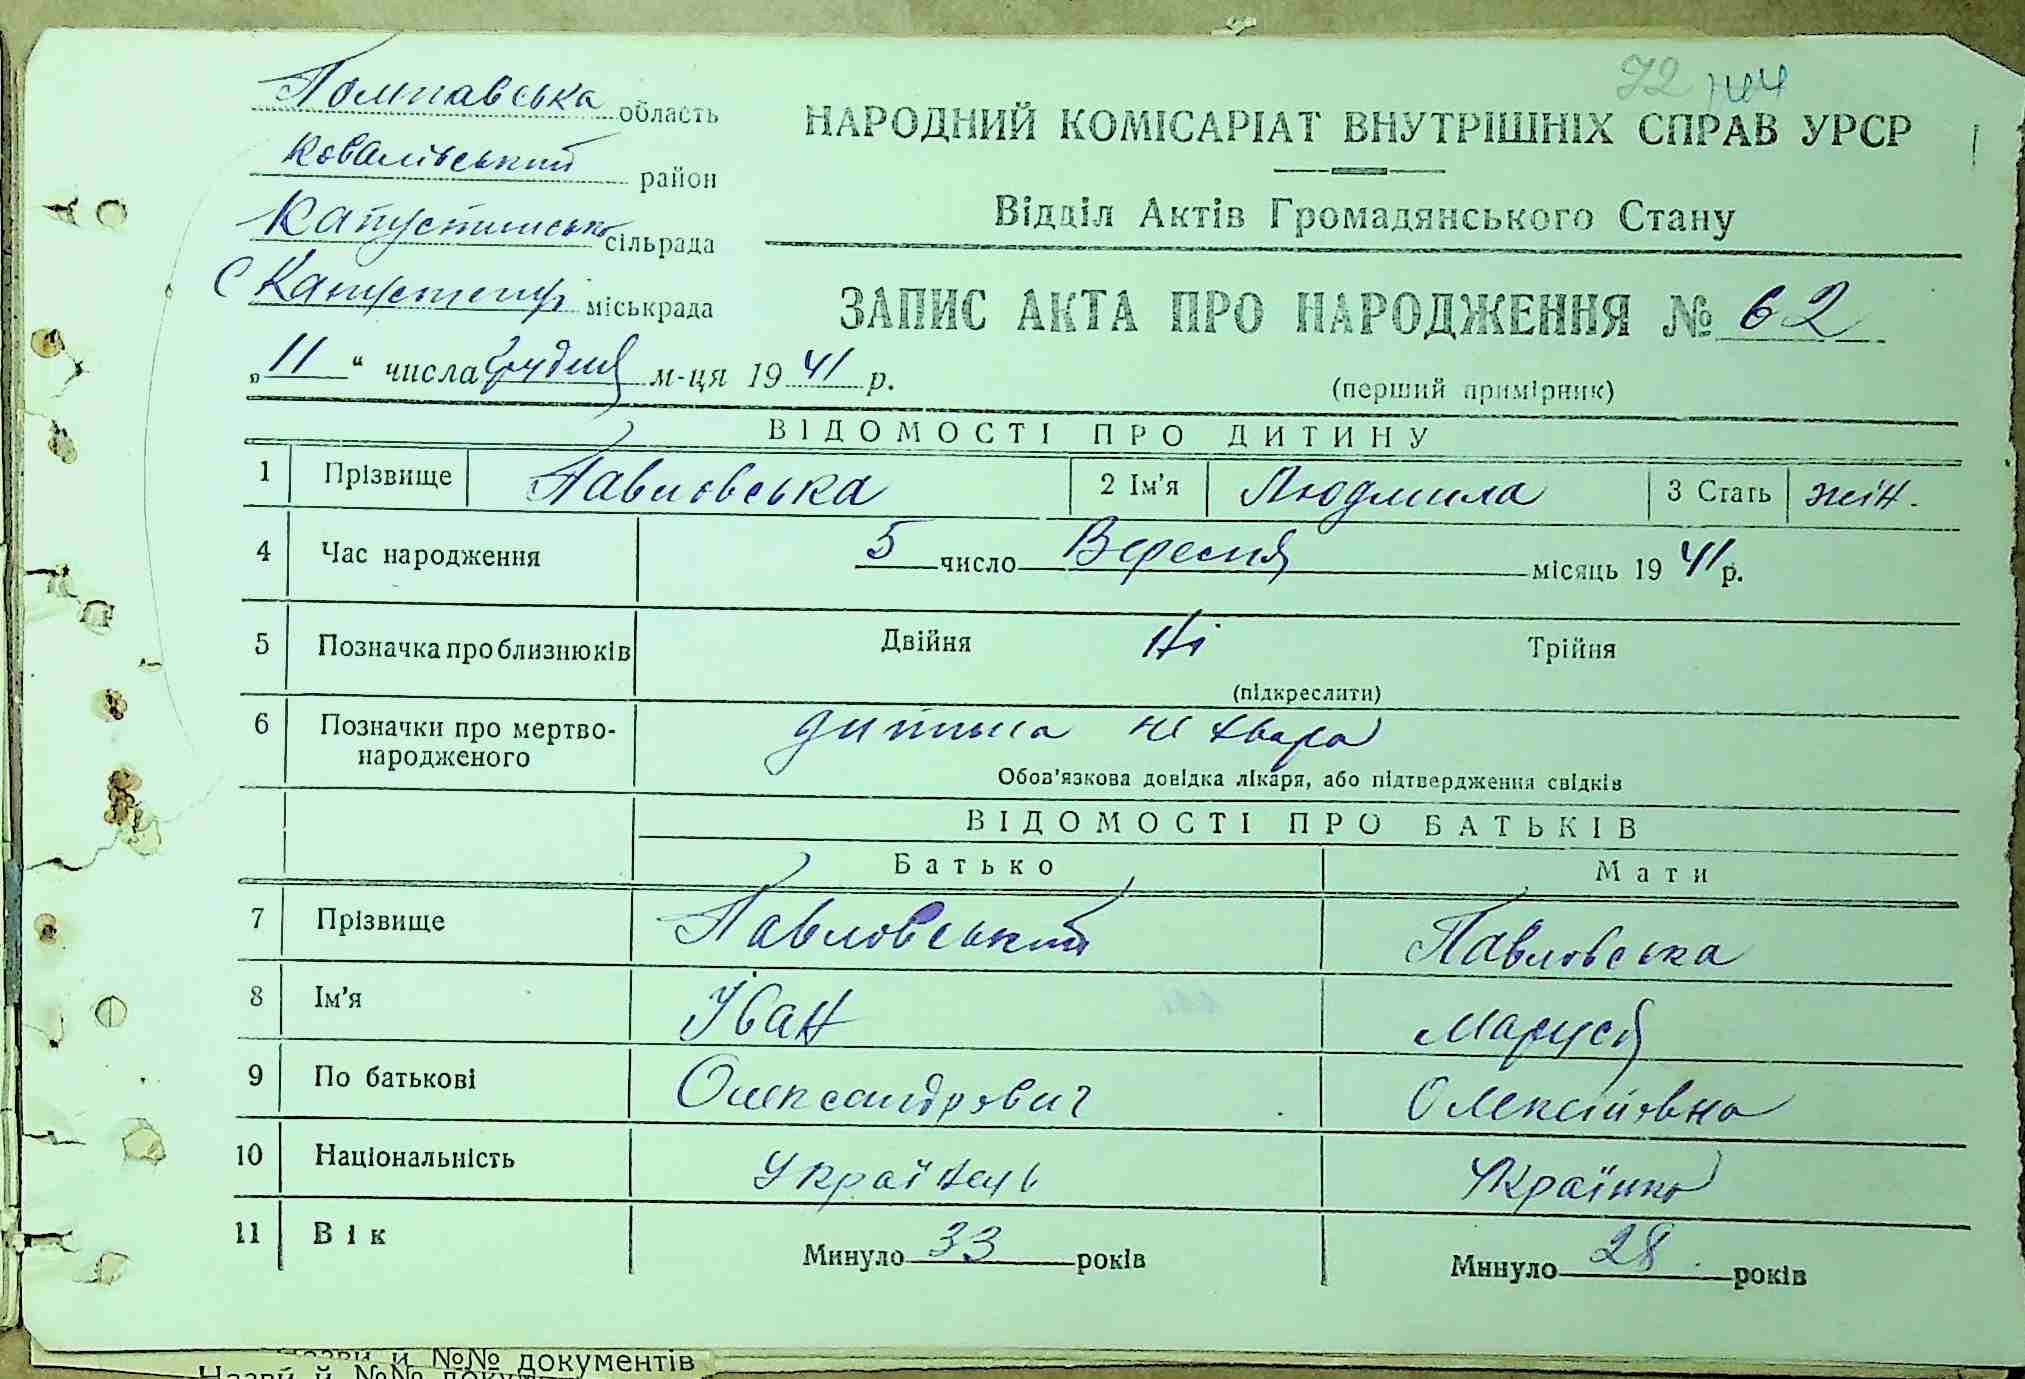 72 144
Полтавська область
НАРОДНИЙ КОМІСАРІАТ ВНУТРІШНІХ СПРАВ УРСР
Ковалівський район
Відділ Актів Громадянського Стану
Капустинська сільрада
С Капустинці міськрада
ЗАПИС АКТА ПРО НАРОДЖЕННЯ № 62
„11“ числа Грудня м-ця 1941 р.
(перший примірник)
ВІДОМОСТІ ПРО ДИТИНУ
1 Прізвище Павловська 2 Ім'я Людмила 3 Стать жін.
4 Час народження 5 число Вересня місяць 1941 р.
5 Позначка про близнюків Двійня Ні Трійня
(підкреслити)
6 Позначки про мертво-
народженого дитина не хвора
Обов'язкова довідка лікаря, або підтвердження свідків
ВІДОМОСТІ ПРО БАТЬКІВ
Батько Мати
7 Прізвище Павловський Павловська
8 Ім'я Іван Маруся
9 По батькові Олександрович Олексіївна
10 Національність Українець Українка
11 Вік Минуло 33 років Минуло 28 років
Назви й №№ документів
Назви й №№